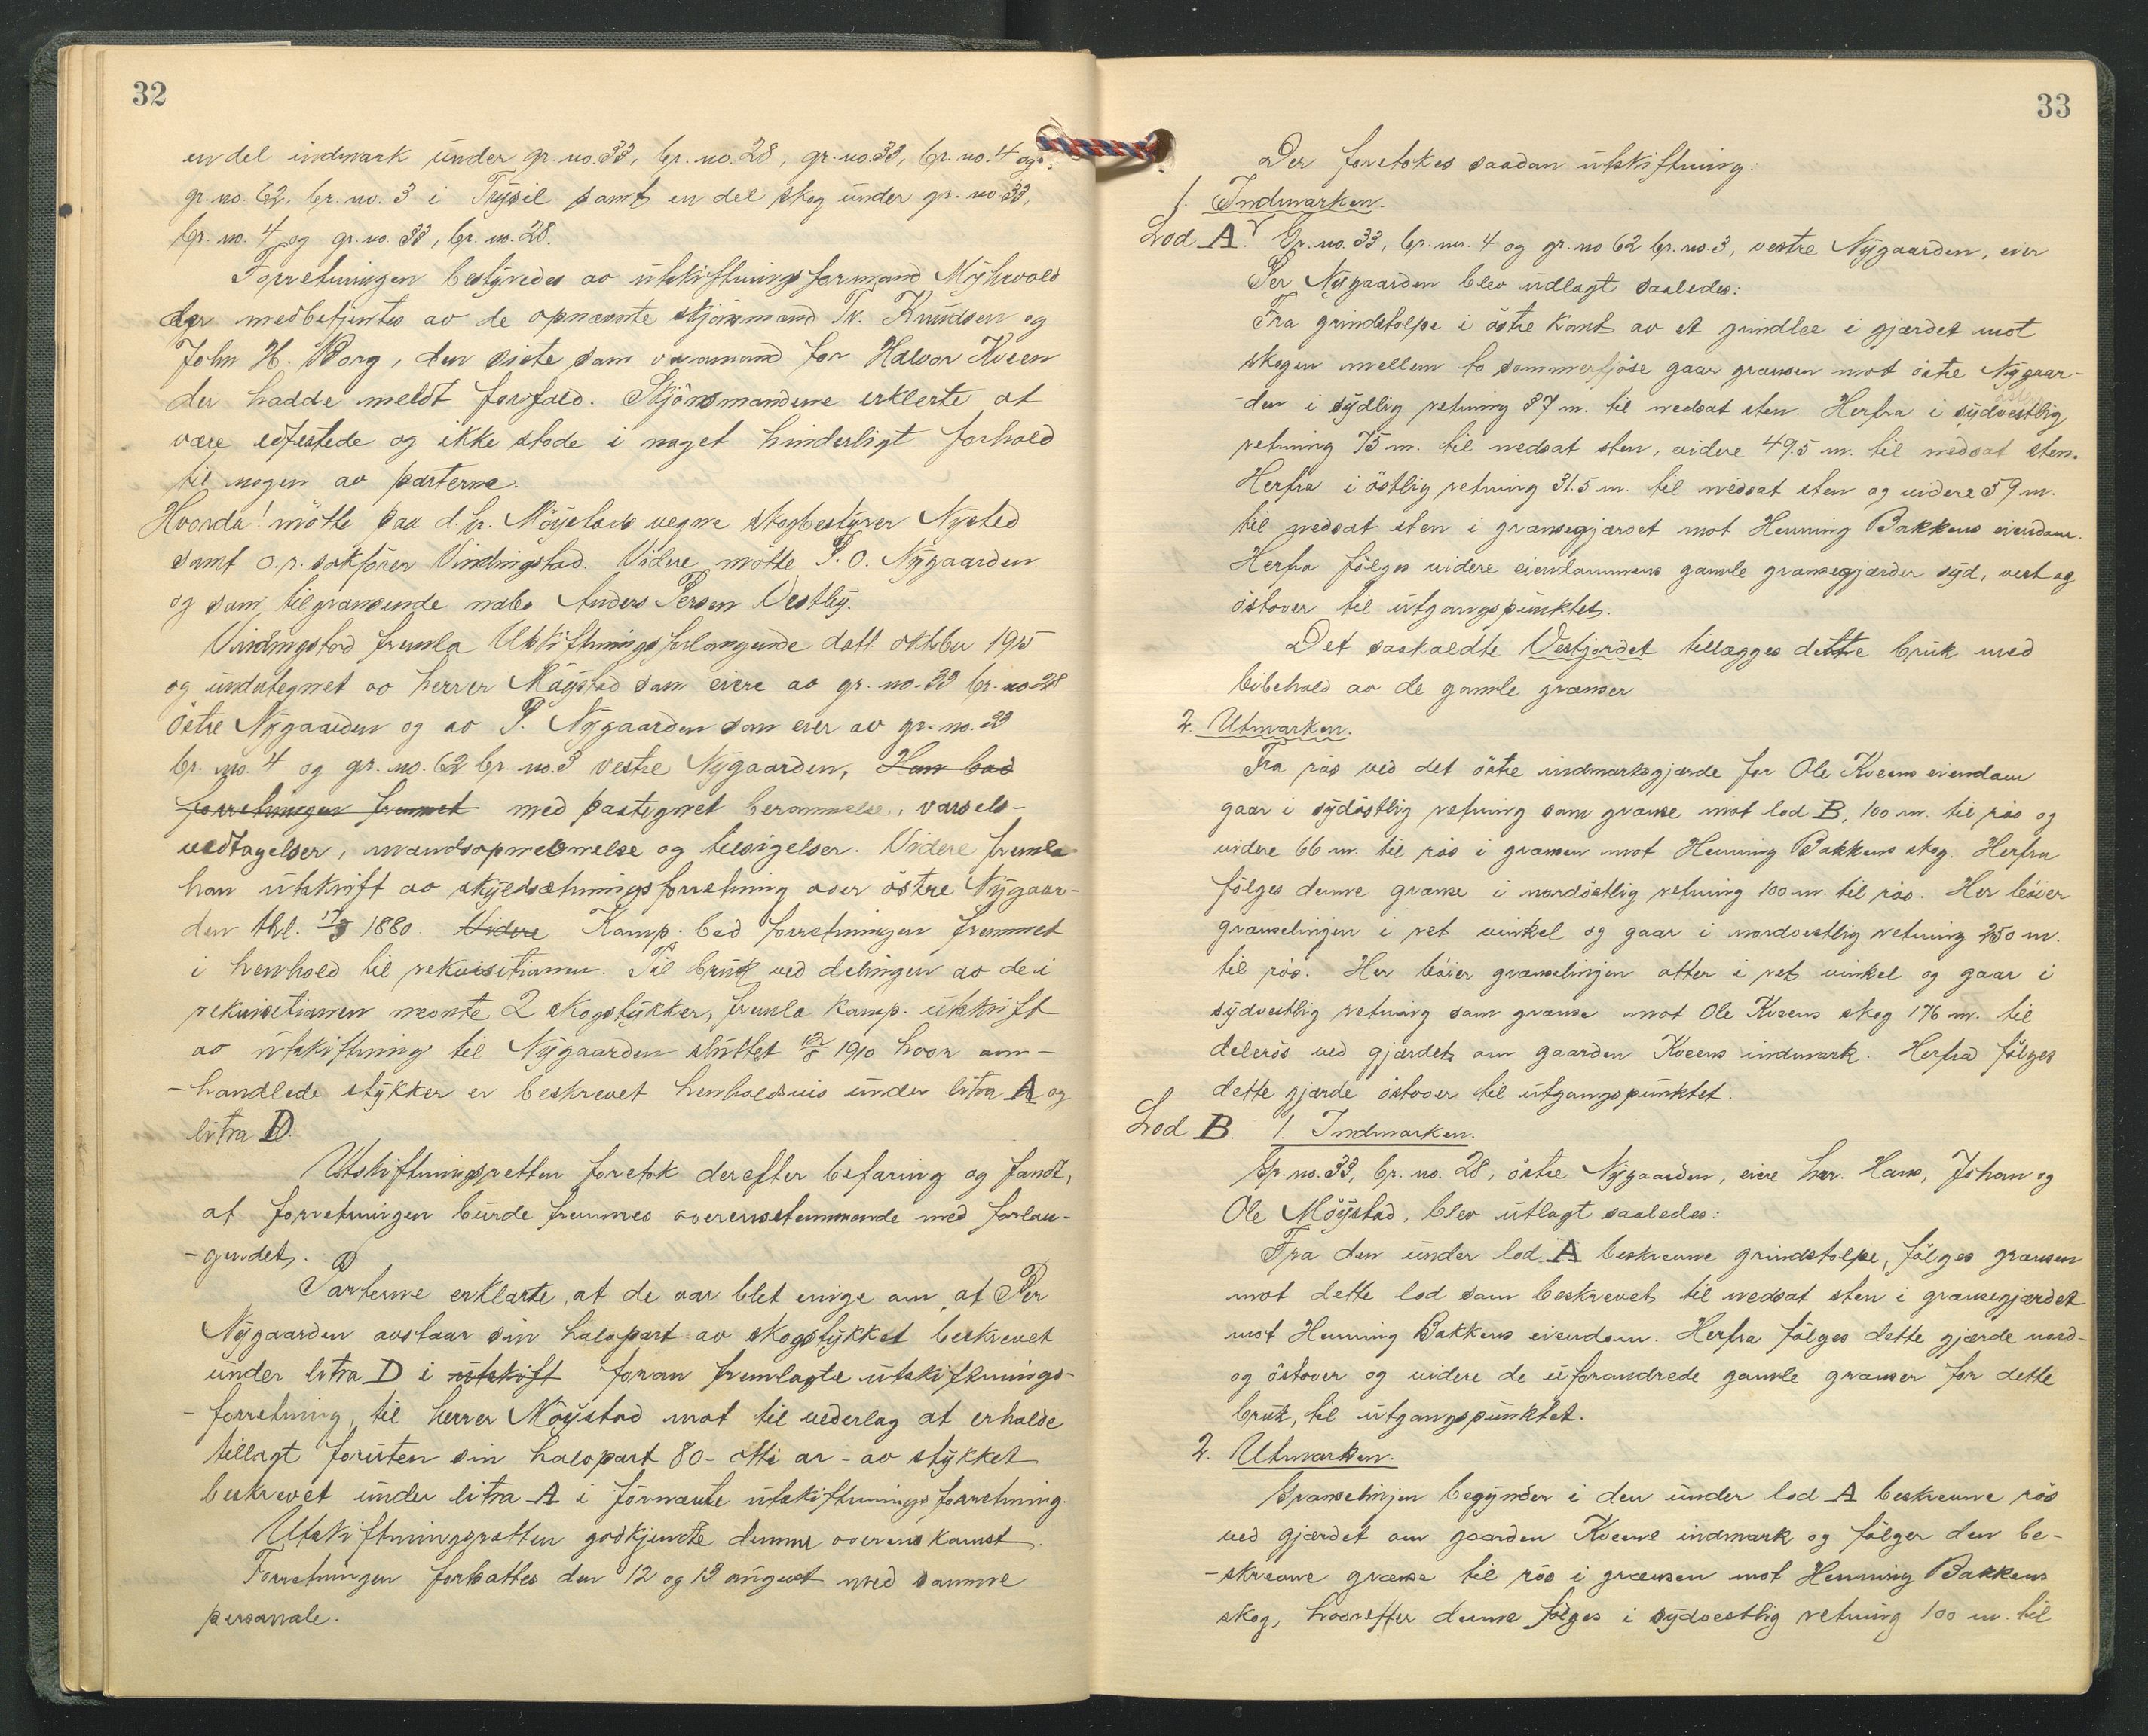 32
en del indmark under gr. no. 33, br. no. 28, gr. no. 33, br. no. 4 og
gr. no. 62, br. no. 3 i Trysil samt en del skog under gr. no. 33,
br. no. 4 og gr. no. 33, br. no. 28.
Forretningen bestyredes av utskiftningsformand Myhrvold
der medbetjentes av de opnævnte skjönsmænd Tr. Knudsen og
John H. Borg, den siste som varamand for Halvor Kveen
der hadde meldt forfald. Skjönsmændene erklerte at
være edfestede og ikke stode i noget hinderligt forhold
til nogen av parterne.
Hvorda! mötte paa d.hr. Möystads vegne skogbestyrer Nysted
samt o.r. sakförer Vindingstad. Videre mötte P. O. Nygaarden
og som tilgrænsende nabo Anders Persen Vestby.
Vindingstad fremla Utskiftningsforlangende datt. oktober 1915
og undertegnet av herrer Möystad som eiere av gr. no. 33 br. no 28
östre Nygaarden og av P. Nygaarden som eier av gr. no. 33
br. no. 4 og gr. no. 62 br. no. 3 vestre Nygaarden, Han bad
forretningen fremmet med paategnet berammelse, varsels-
vedtagelser, mandsopnevnelse og tilsigelser. Videre fremla
han utskrift av skyldsætningsforretning over östre Nygaar-
den thl. 17/3 1880. Videre Komp. bad forretningen fremmet
i henhold til rekvisitionen. Til bruk ved delingen av de i
rekvisitionen nevnte 2 skogstykker, fremla komp. utskrift
av utskiftning til Nygaarden sluttet 12/8 1910 hvor om-
-handlede stykker er beskrevet henholdsvis under litra A og
litra D.
Utskiftningsretten foretok derefter befaring og fandt,
at forretningen burde fremmes overensstemmende med forlan-
-gendet.
Parterne erklærte, at de var blet enige om, at Per
Nygaarden avstaar sin halvpart av skogstykket beskrevet
under litra D i utskift foran fremlagte utskiftnings-
-forretning, til herrer Möystad mot til vederlag at erholde
tillagt foruten sin halvpart 80 - otti ar - av stykket
beskrevet under litra A i förnævnte utskiftningsforretning.
Utskiftningsretten godkjendte denne overenskomst.
Forretningen fortsattes den 12 og 13 august med samme
personale.
33
Der foretokes saadan utskiftning:
1. Indmarken.
Lod A. Gr. no. 33, br. no. 4 og gr. no 62 br. no. 3, vestre Nygaarden, eier
Per Nygaarden blev udlagt saaledes:
Fra grindstolpe i östre kant av et grindlee i gjærdet mot
skogen mellem to sommerfjöse gaar grænsen mot östre Nygaar-
-den i sydlig retning 87 m. til nedsat sten. Herfra i sydvestlig
retning 75 m. til nedsat sten, videre 49.5 m. til nedsat sten.
Herfra i östlig retning 31.5 m. til nedsat sten og videre 59 m.
til nedsat sten i grænsegjærdet mot Henning Bakkens eiendom.
Herfra fölges videre eiendommens gamle grænsegjærder syd, vest og
östover til utgangspunktet.
Det saakaldte Vestjordet tillægges dette bruk med
bibehold av de gamle grænser
2. Utmarken.
Fra rös ved det östre indmarksgjærde for Ole Kveens eiendom
gaar i sydöstlig retning som grænse mot lod B, 100 m. til rös og
videre 66 m. til rös i grænsen mot Henning Bakkens skog. Herfra
fölges denne grænse i nordöstlig retning 100 m. til rös. Her böier
grænselinjen i ret vinkel og gaar i nordvestlig retning 250 m.
til rös. Her böier grænselinjen atter i ret vinkel og gaar i
sydvestlig retning som grænse mot Ole Kveens skog 176 m. til
delerös ved gjærdet om gaarden Kveens indmark. Herfra fölges
dette gjærde östover til utgangspunktet.
Lod B. 1. Indmarken.
Gr. no. 33, br. no. 28, östre Nygaarden, eiere hrr. Hans, Johan og
Ole Möystad, blev utlagt saaledes:
Fra den under lod A beskrevne grindstolpe, fölges grænsen
mot dette lod som beskrevet til nedsat sten i grænsegjærdet
mot Henning Bakkens eiendom. Herfra fölges dette gjærde nord-
og östover og videre de uforandrede gamle grænser for dette
bruk, til utgangspunktet.
2. Utmarken.
Grænselinjen begynder i den under lod A beskrevne rös
ved gjærdet om gaarden Kveens indmark og fölger den be-
-skrevne grænse til rös i grænsen mot Henning Bakkens
skog, hvorefter denne fölges i sydvestlig retning 100 m. til